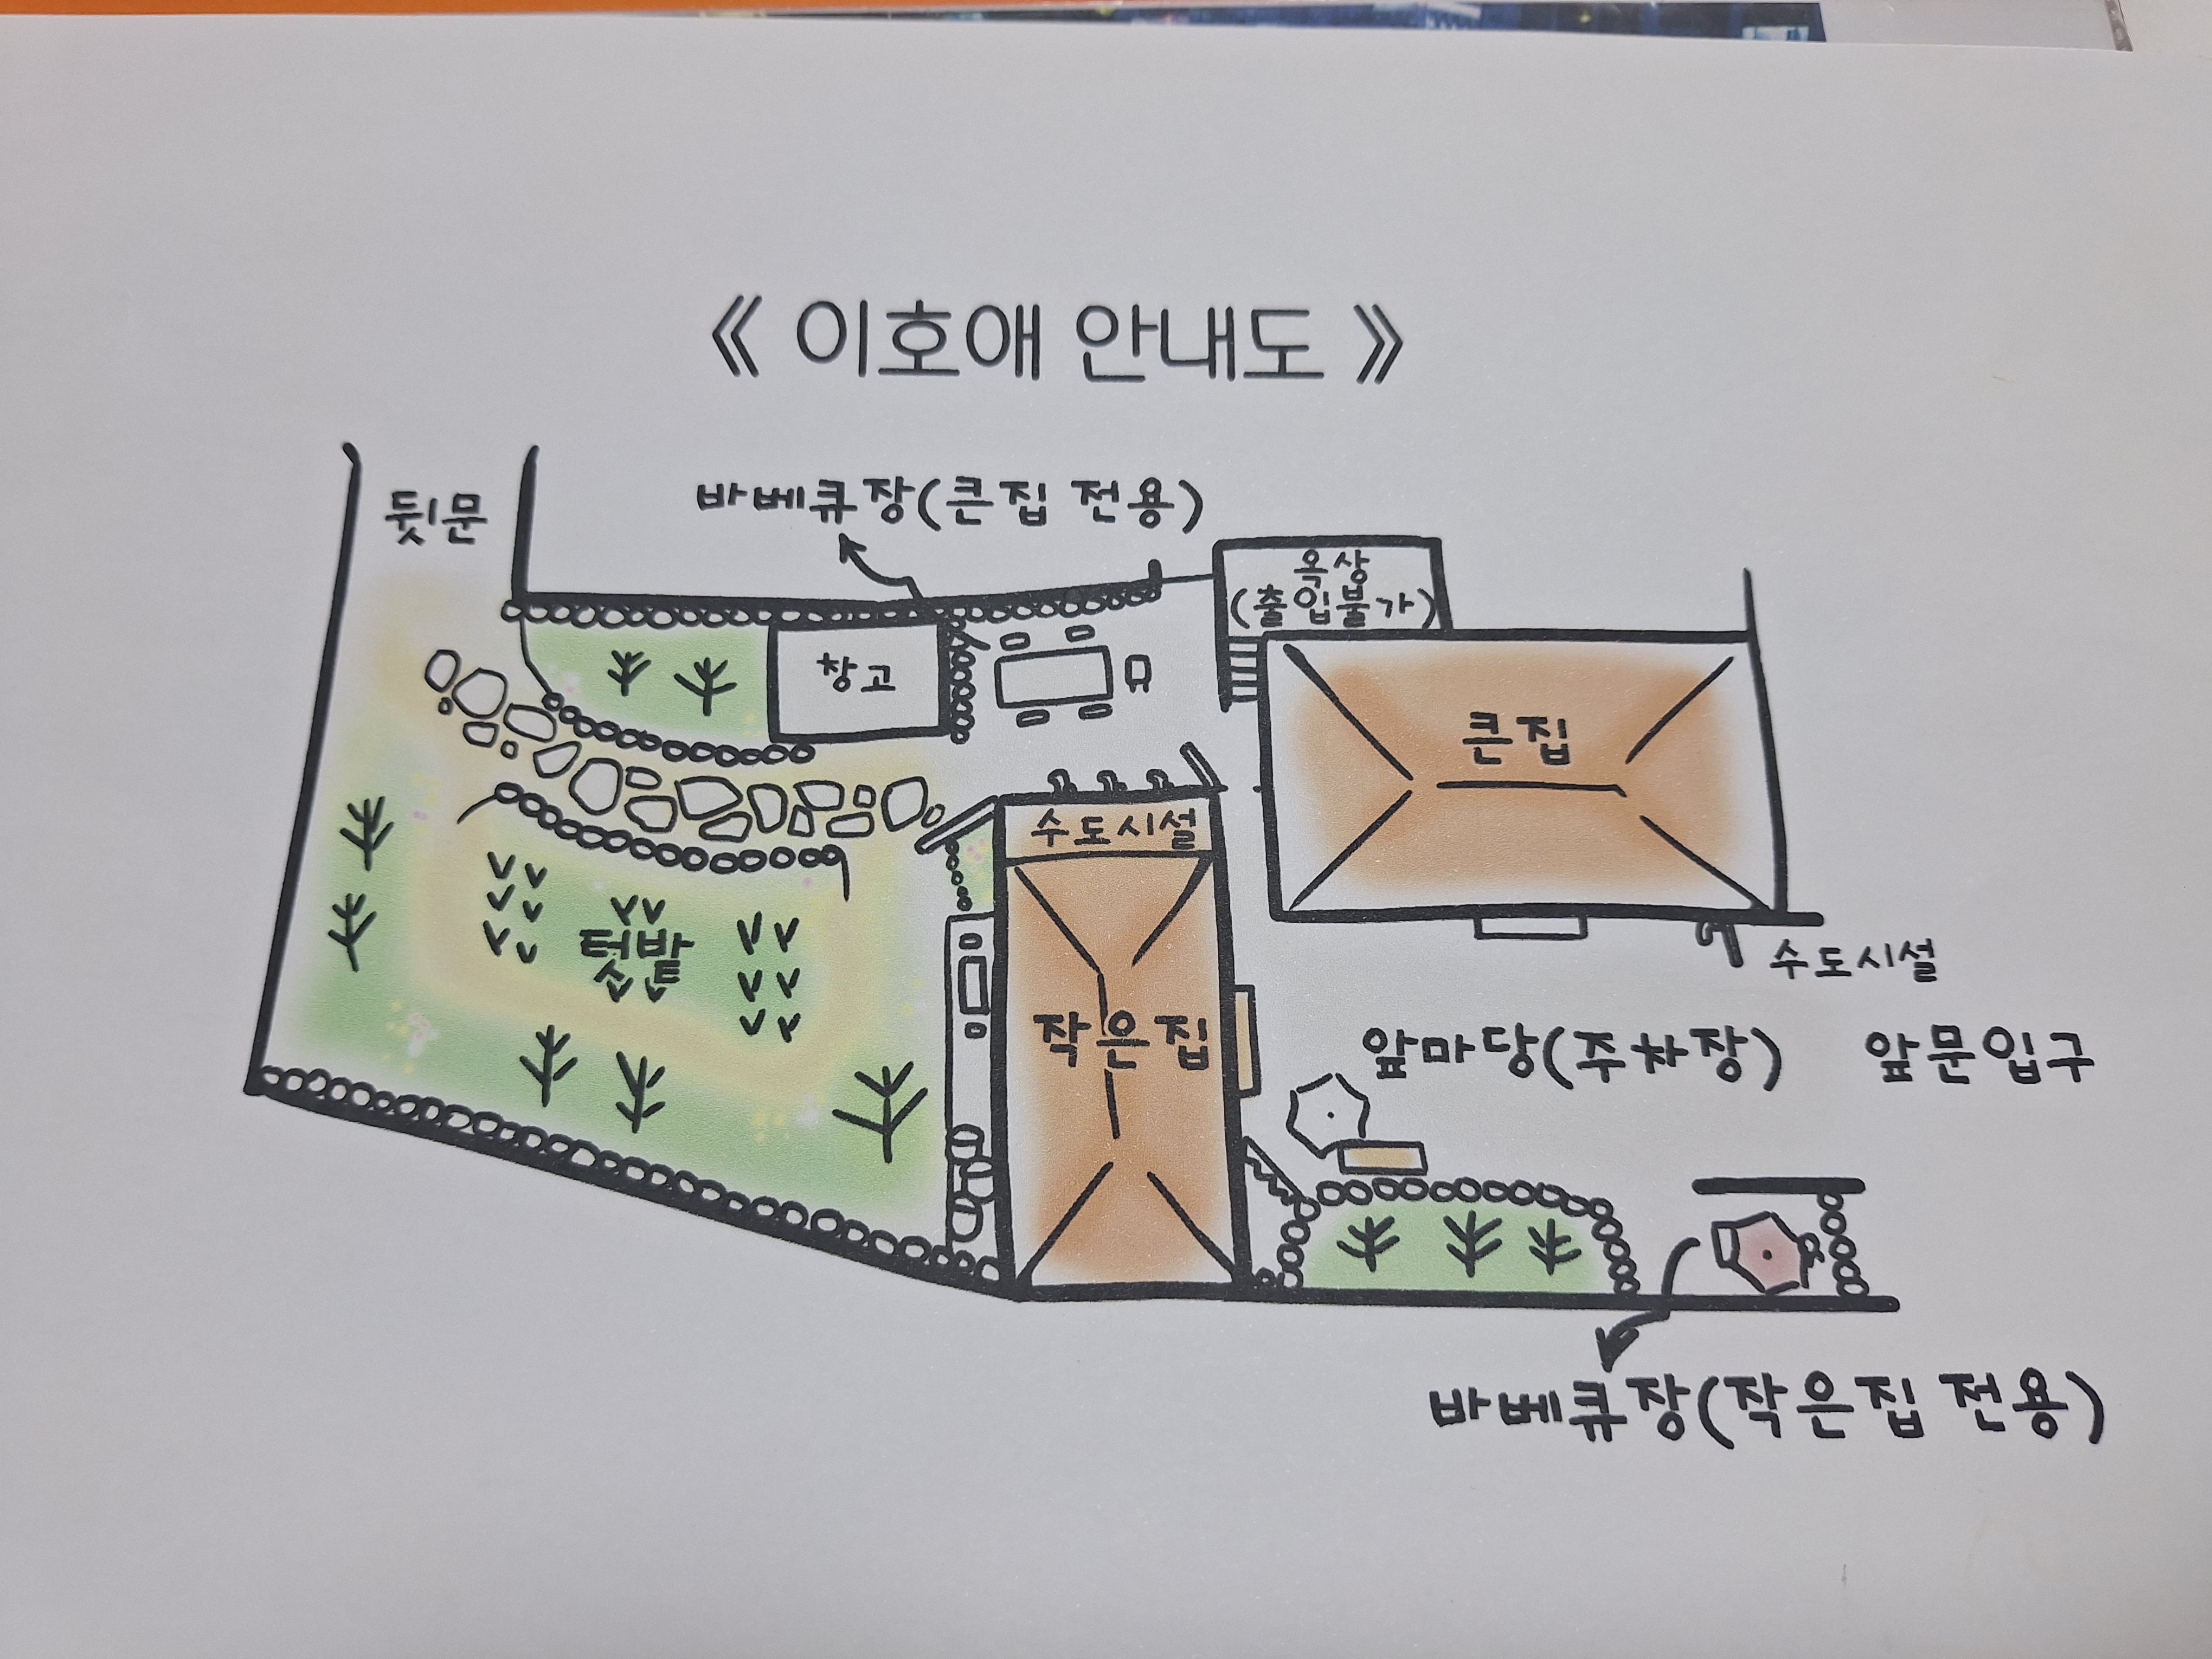 《 이호애 안내도 》
뒷문
바베큐장(큰집 전용)
옥상
(출입불가)
창고
큰집
수도시설
텃밭
작은집
수도시설
앞마당(주차장)
앞문입구
바베큐장(작은집 전용)